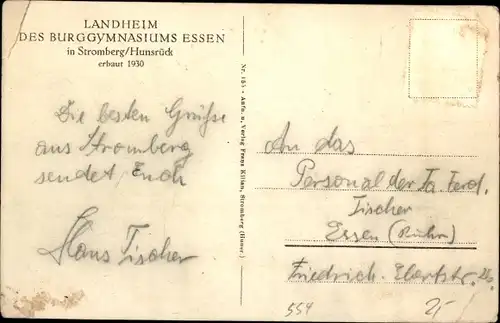 LANDHEIM
DES BURGGYMNASIUMS ESSEN
in Stromberg/Hunsrück
erbaut 1930
Die besten Grüße
aus Stromberg
sendet Euch
Hans Fischer
Nr. 155 - Aufn. u. Verlag Franz Kilian, Stromberg (Hunsr.)
An das
Personal der Fa. Ferd.
Fischer
Essen (Ruhr)
Friedrich-Ebertstr.
554
25